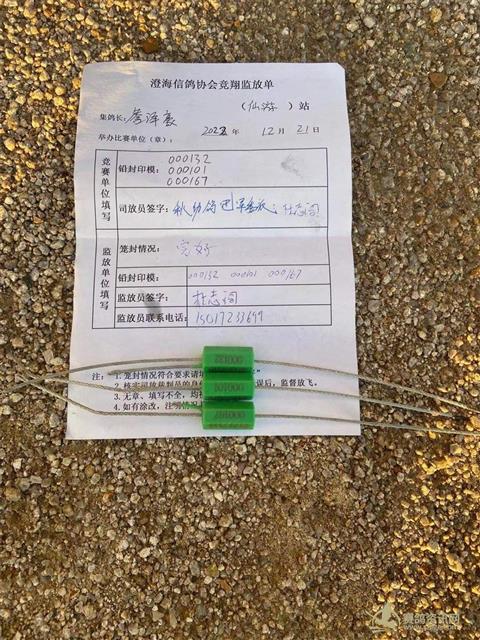 澄海信鸽协会竞翔监放单
（仙游）站
集鸽长：
举办比赛单位（章）： 2022年 12月21日
竞赛单位填写
铅封印模：
000132
000101
000167
司放员签字：
监放单位填写
笼封情况： 完好
铅封印模： 000132 000101 000167
监放员签字： 杜志润
监放员联系电话： 15017233699
注： 1.笼封情况符合要求请填
2.核实司放裁判员的身 误后，监督放飞。
3.无章、填写不全，均视
4.如有涂改，注明情况
000132
000101
000167
赛鸽资讯网